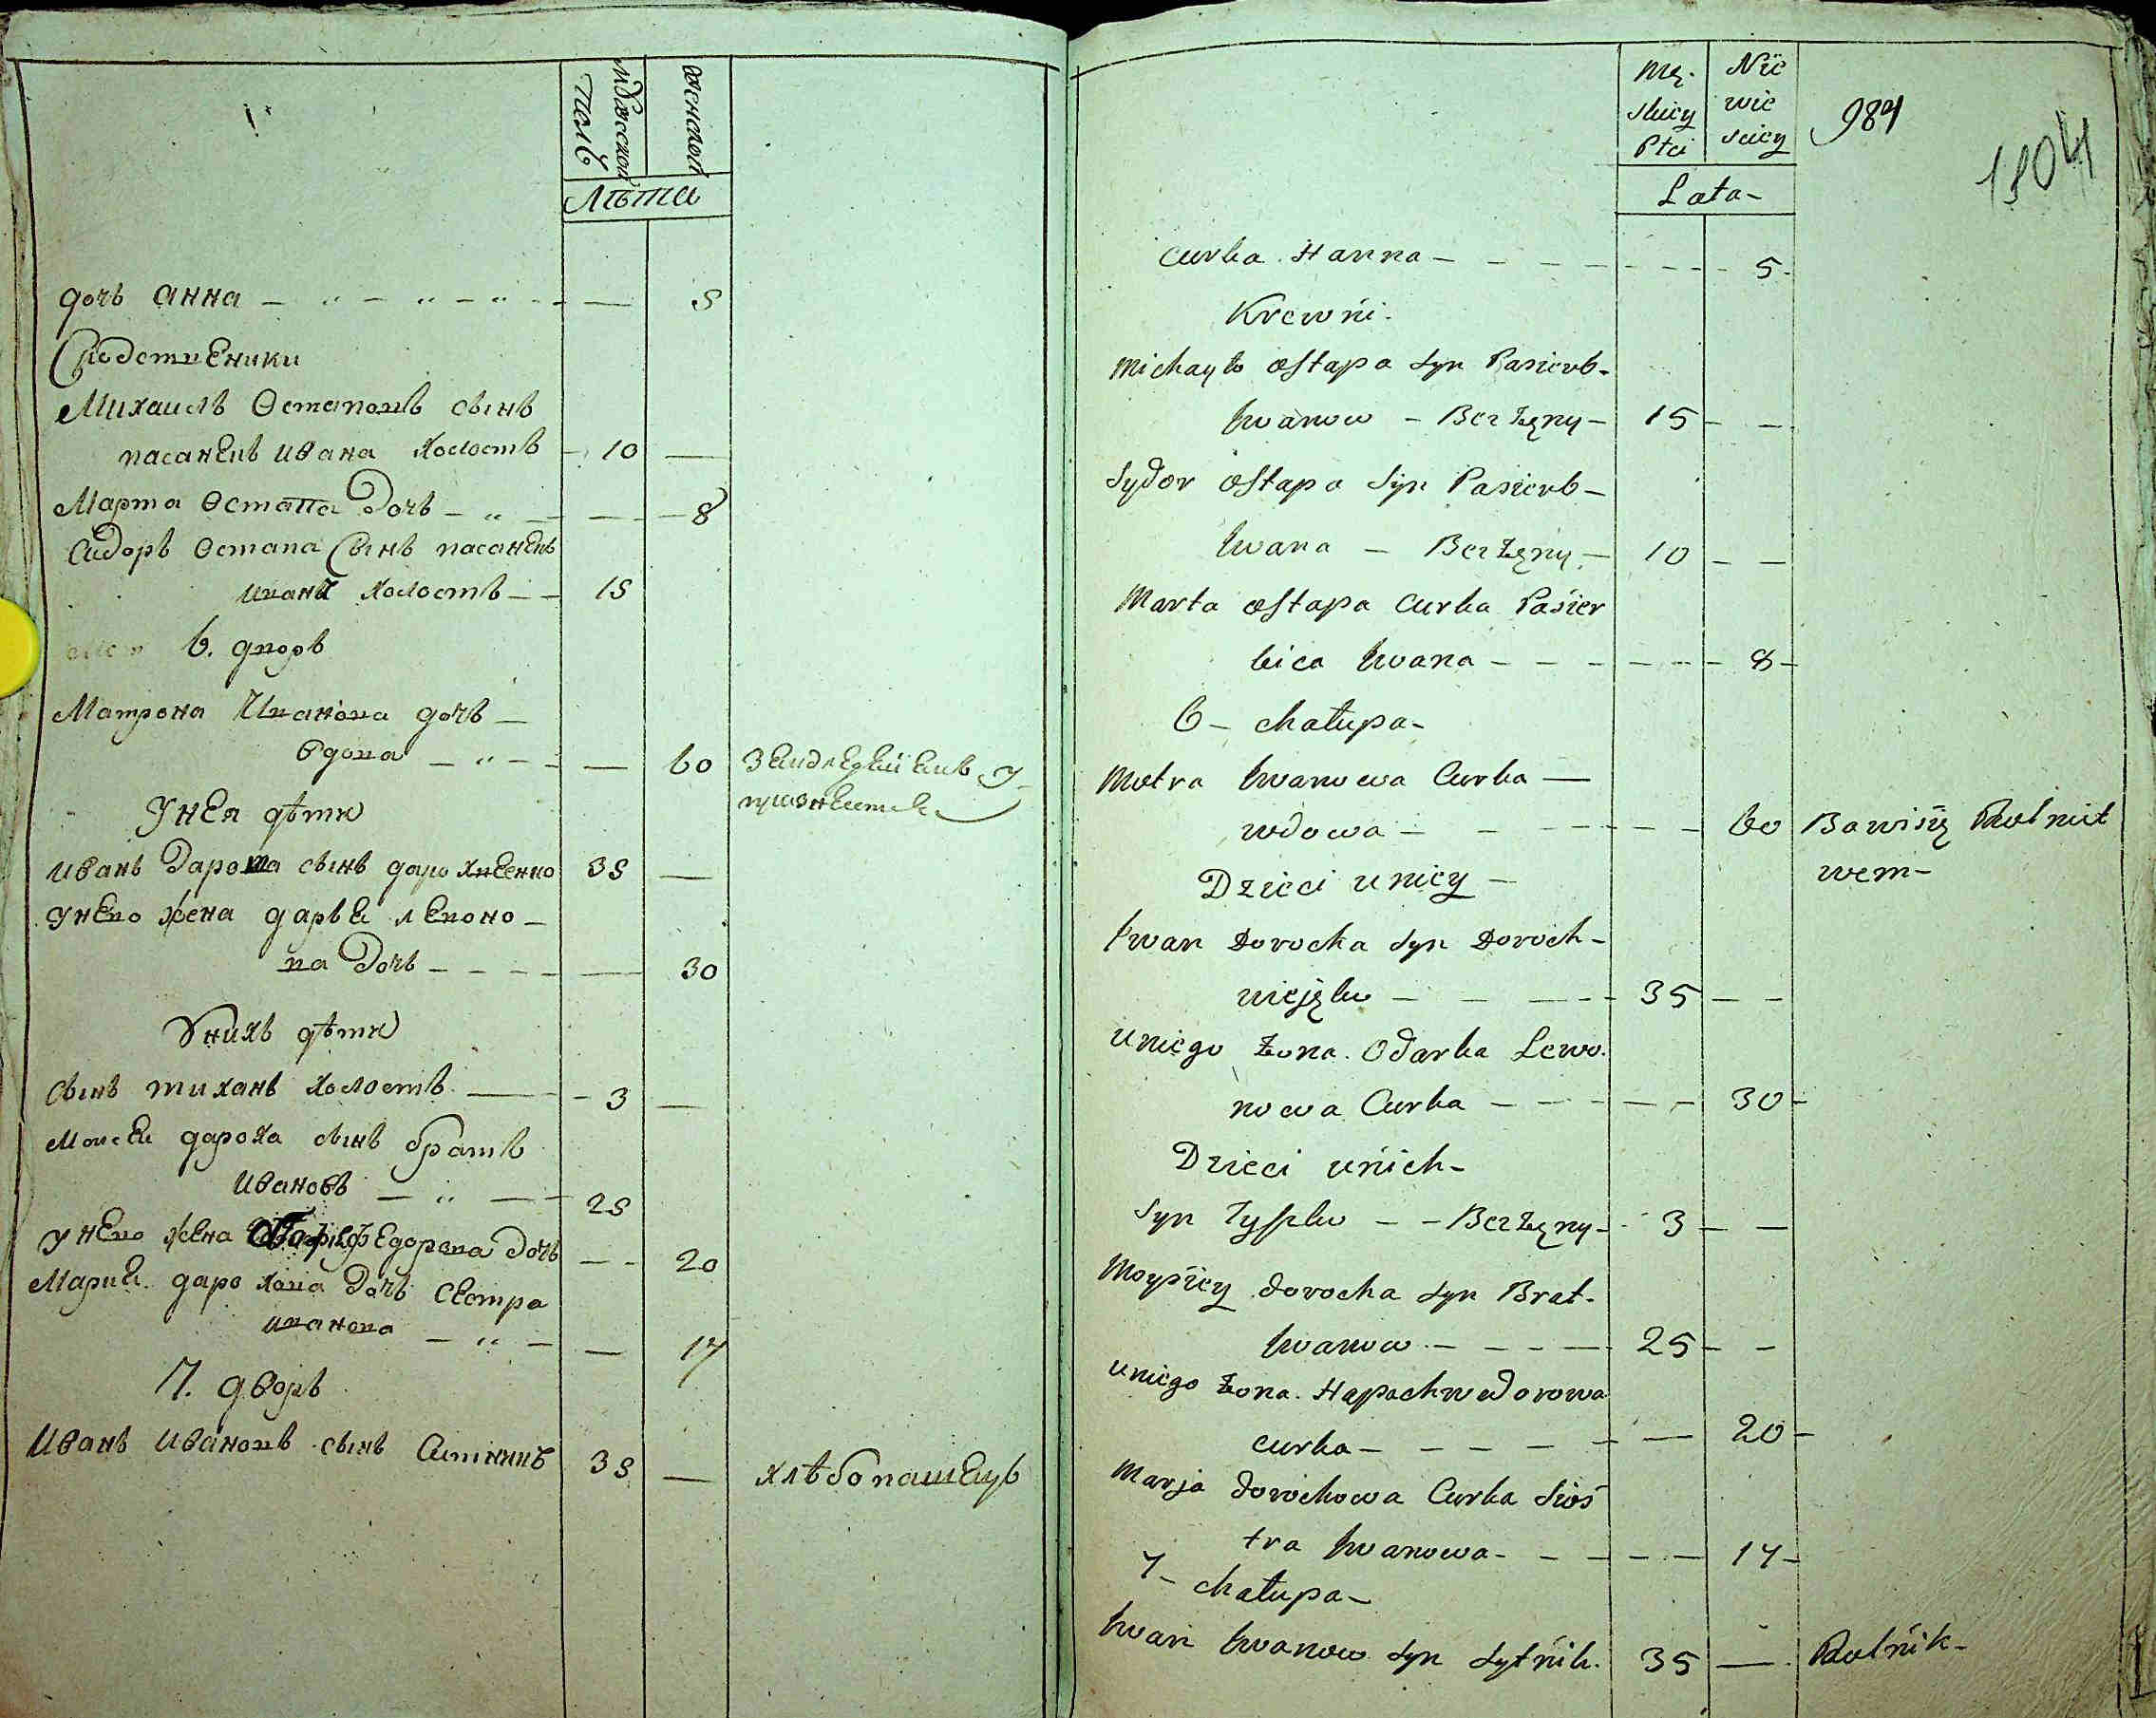 мужеской
полъ
женской
Лѣта
дочь анна — 5
Сродственики
Михаилъ Остаповъ сынъ
пасанекъ ивана холостъ — 10 —
Марта Остапа дочь — — 8
Сидоръ Остапа Сынъ пасанекъ
ивана холостъ — 15
6. дворъ
Матрона Иванова дочь —
вдова — — 60
У нея дѣти
иванъ дароха сынъ дарохвеенко 35 —
у нево жена дарьа левоно —
ва дочь — — 30
У нихъ дѣти
сынъ тиханъ холостъ — 3 —
Моисеи дароха сынъ братъ
ивановъ — 25
у нево жена федорова дочь — 20
Мариа дарохова дочь сестра
иванова — — 17
7. дворъ
Иванъ ивановъ сынъ Ситникъ 35 — хлѣбопашецъ
Mę-
skiey
Płci
Nie
wie
sciey
Lata-
984
1304
curka Hanna — 5-
Krewni-
Michayło Ostapa Syn Pasierb-
Iwanow — Bezżęny — 15 — —
Sydor Ostapa Syn Pasierb —
Iwana — Bezżęny — 10 — —
Marta Ostapa Curka Pasier
bica Iwana — 8 —
6 — chałupa-
Motra Iwanowa Curka —
wdowa — 60 Bawisię Rolnict
wem-
Dzieci u niey —
Iwan Dorocha Syn Doroch-
wiejęko — 35 — —
u niego Żona. Odarka Lewo-
nowa Curka — 30 —
Dzieci u nich-
Syn Tyszko — Bezżęny — 3 — —
Moysiey Dorocha Syn Brat-
Iwanow — 25 — —
u niego Żona. Hapachwedorowa
curka — 20 —
Marja Dorochowa Curka Sios
tra Iwanowa — 17 —
7 — chałupa —
Iwan Iwanow Syn Sytnik. 35 — Rolnik-